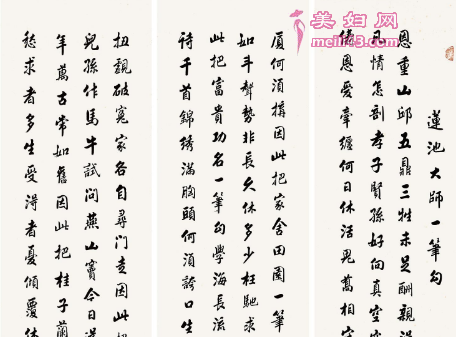 美妇网
蓮池大師一筆勾
恩重山邱五鼎三牲未足酬親淂
凡情怎剖孝子賢孫好向真空
儔恩愛牽纏何日休活鬼喬相守
厦何須搆因此把家舍田園一筆
如斗聲勢非長久休多少枉馳求
此把富貴功名一筆勾學海長流
詩千首錦綉滿胸頭何須誇口生
扭覷破冤家各自尋門走因此把
兒孫作馬牛試問燕山竇今日還
年萬古常如舊因此把桂子蘭
愁求者多生受淂者憂傾覆休